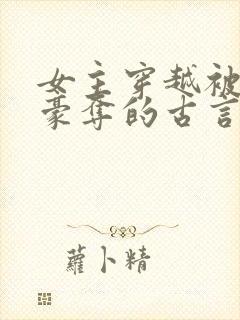 女主穿越被
豪夺的古言
蘿卜精